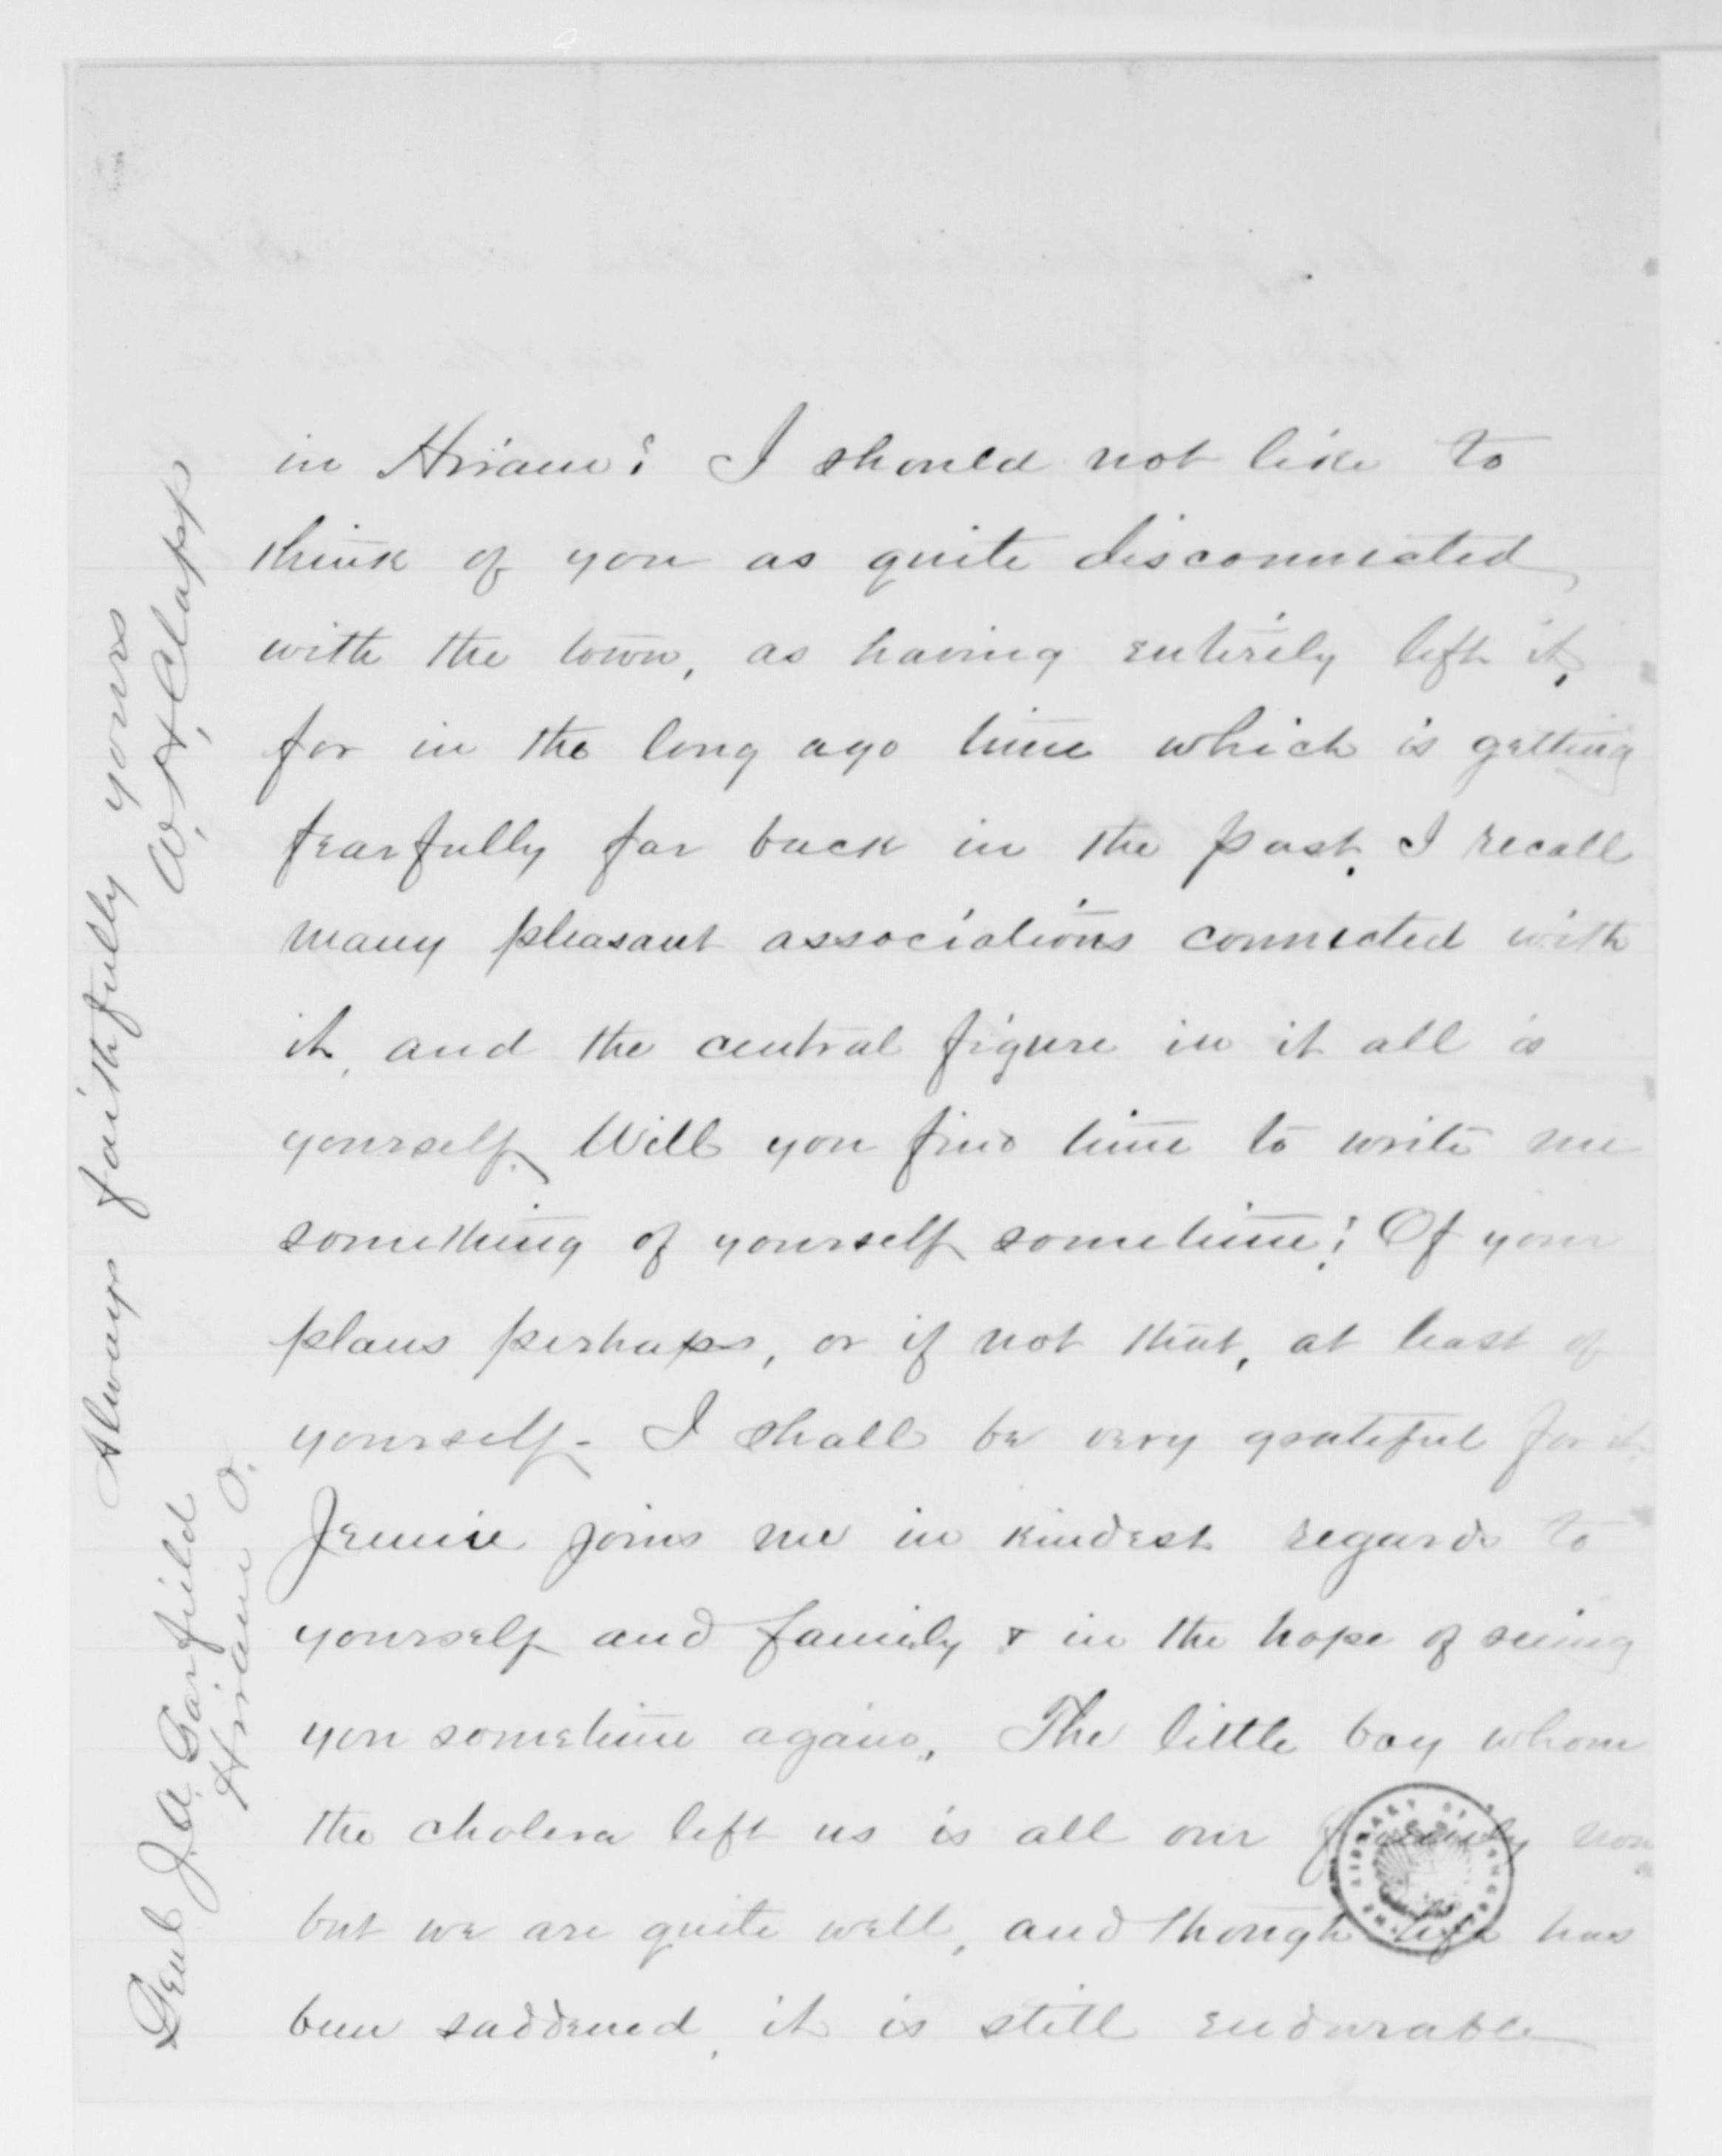 in Hiram? I should not like to
think of you as quite disconnected
with the town, as having entirely left it,
for in the long ago time which is getting
fearfully far back in the past, I recall
many pleasant associations connected with
it, and the central figure in it all is
yourself. Will you find time to write me
something of yourself sometime? Of your
plans perhaps, or if not that, at least of
yourself - I shall be very grateful for it
Jennie joins me in kindest regards to
yourself and family & in the hope of seeing
you sometime again. The little boy whom
the cholera left us is all our family now
but we are quite well, and though life has
been saddened, it is still endurable
Always faithfully yours
W. H. Clapp
Genl J. A. Garfield
Hiram O.
LIBRARY OF CONGRESS